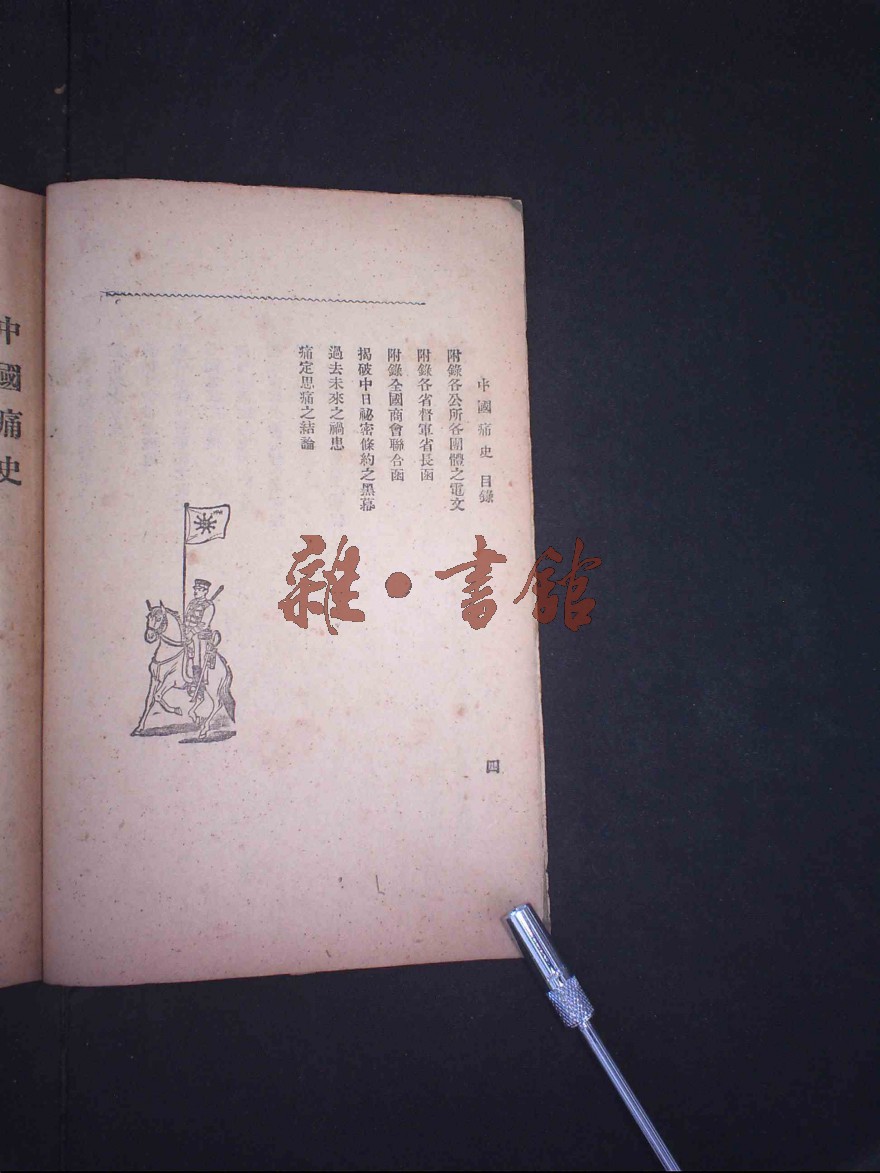 中國痛史 目錄
附錄各公所各團體之電文
附錄各省督軍省長函
附錄全國商會聯合函
揭破中日祕密條約之黑幕
過去未來之禍患
痛定思痛之結論
四
中國痛史
雜·書館